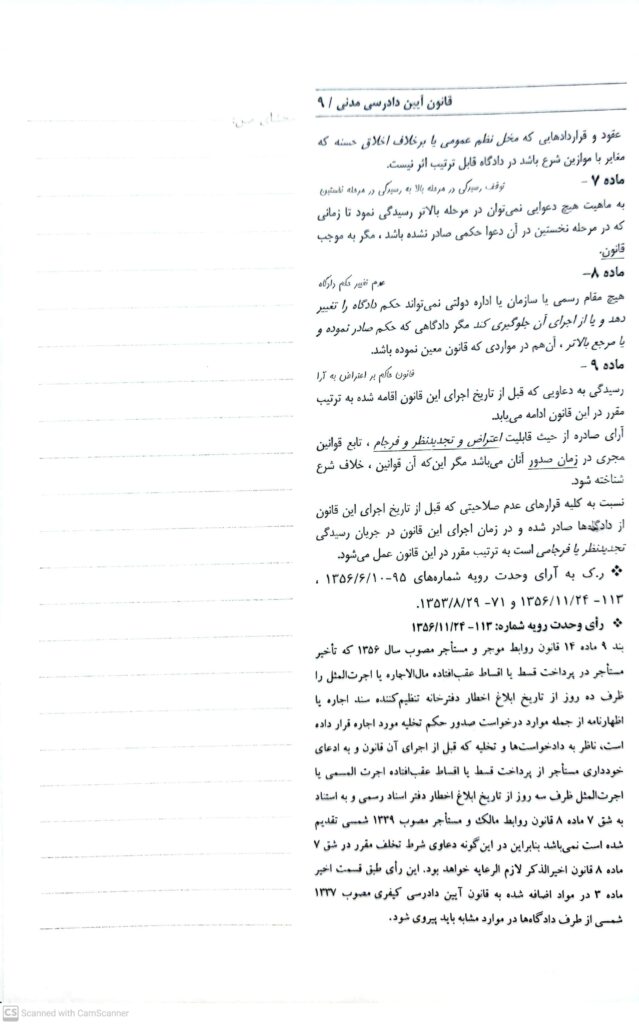 قانون آیین دادرسی مدنی / ۹
عقود و قراردادهایی که مخل نظم عمومی یا بر خلاف اخلاق حسنه که
مغایر با موازین شرع باشد در دادگاه قابل ترتیب اثر نیست.
ماده ۷ - توقف رسیدگی در مرحله بالا به رسیدگی در مرحله نخستین
به ماهیت هیچ دعوایی نمی‌توان در مرحله بالاتر رسیدگی نمود تا زمانی
که در مرحله نخستین در آن دعوا حکمی صادر نشده باشد ، مگر به موجب
قانون.
ماده ۸- عدم تغییر حکم دادگاه
هیچ مقام رسمی یا سازمان یا اداره دولتی نمی‌تواند حکم دادگاه را تغییر
دهد و یا از اجرای آن جلوگیری کند مگر دادگاهی که حکم صادر نموده و
یا مرجع بالاتر ، آن‌هم در مواردی که قانون معین نموده باشد.
ماده ۹ - قانون حاکم بر اعتراض به آرا
رسیدگی به دعاویی که قبل از تاریخ اجرای این قانون اقامه شده به ترتیب
مقرر در این قانون ادامه می‌یابد.
آرای صادره از حیث قابلیت اعتراض و تجدیدنظر و فرجام ، تابع قوانین
مجری در زمان صدور آنان می‌باشد مگر این‌که آن قوانین ، خلاف شرع
شناخته شود.
نسبت به کلیه قرارهای عدم صلاحیتی که قبل از تاریخ اجرای این قانون
از دادگاه‌ها صادر شده و در زمان اجرای این قانون در جریان رسیدگی
تجدیدنظر یا فرجامی است به ترتیب مقرر در این قانون عمل می‌شود.
❖ ر.ک به آرای وحدت رویه شماره‌های ۹۵-۱۳۵۶/۶/۱۰ ،
۱۱۳- ۱۳۵۶/۱۱/۲۴ و ۷۱- ۱۳۵۳/۸/۲۹.
❖ رأی وحدت رویه شماره: ۱۱۳- ۱۳۵۶/۱۱/۲۴
بند ۹ ماده ۱۴ قانون روابط موجر و مستأجر مصوب سال ۱۳۵۶ که تأخیر
مستأجر در پرداخت قسط یا اقساط عقب‌افتاده مال‌الاجاره یا اجرت‌المثل را
ظرف ده روز از تاریخ ابلاغ اخطار دفترخانه تنظیم‌کننده سند اجاره یا
اظهارنامه از جمله موارد درخواست صدور حکم تخلیه مورد اجاره قرار داده
است، ناظر به دادخواست‌ها و تخلیه که قبل از اجرای آن قانون و به ادعای
خودداری مستأجر از پرداخت قسط یا اقساط عقب‌افتاده اجرت المسمی یا
اجرت‌المثل ظرف سه روز از تاریخ ابلاغ اخطار دفتر اسناد رسمی و به استناد
به شق ۷ ماده ۸ قانون روابط مالک و مستأجر مصوب ۱۳۳۹ شمسی تقدیم
شده است نمی‌باشد بنابراین در این‌گونه دعاوی شرط تخلف مقرر در شق ۷
ماده ۸ قانون اخیرالذکر لازم الرعایه خواهد بود. این رأی طبق قسمت اخیر
ماده ۳ در مواد اضافه شده به قانون آیین دادرسی کیفری مصوب ۱۳۳۷
شمسی از طرف دادگاه‌ها در موارد مشابه باید پیروی شود.
CS Scanned with CamScanner